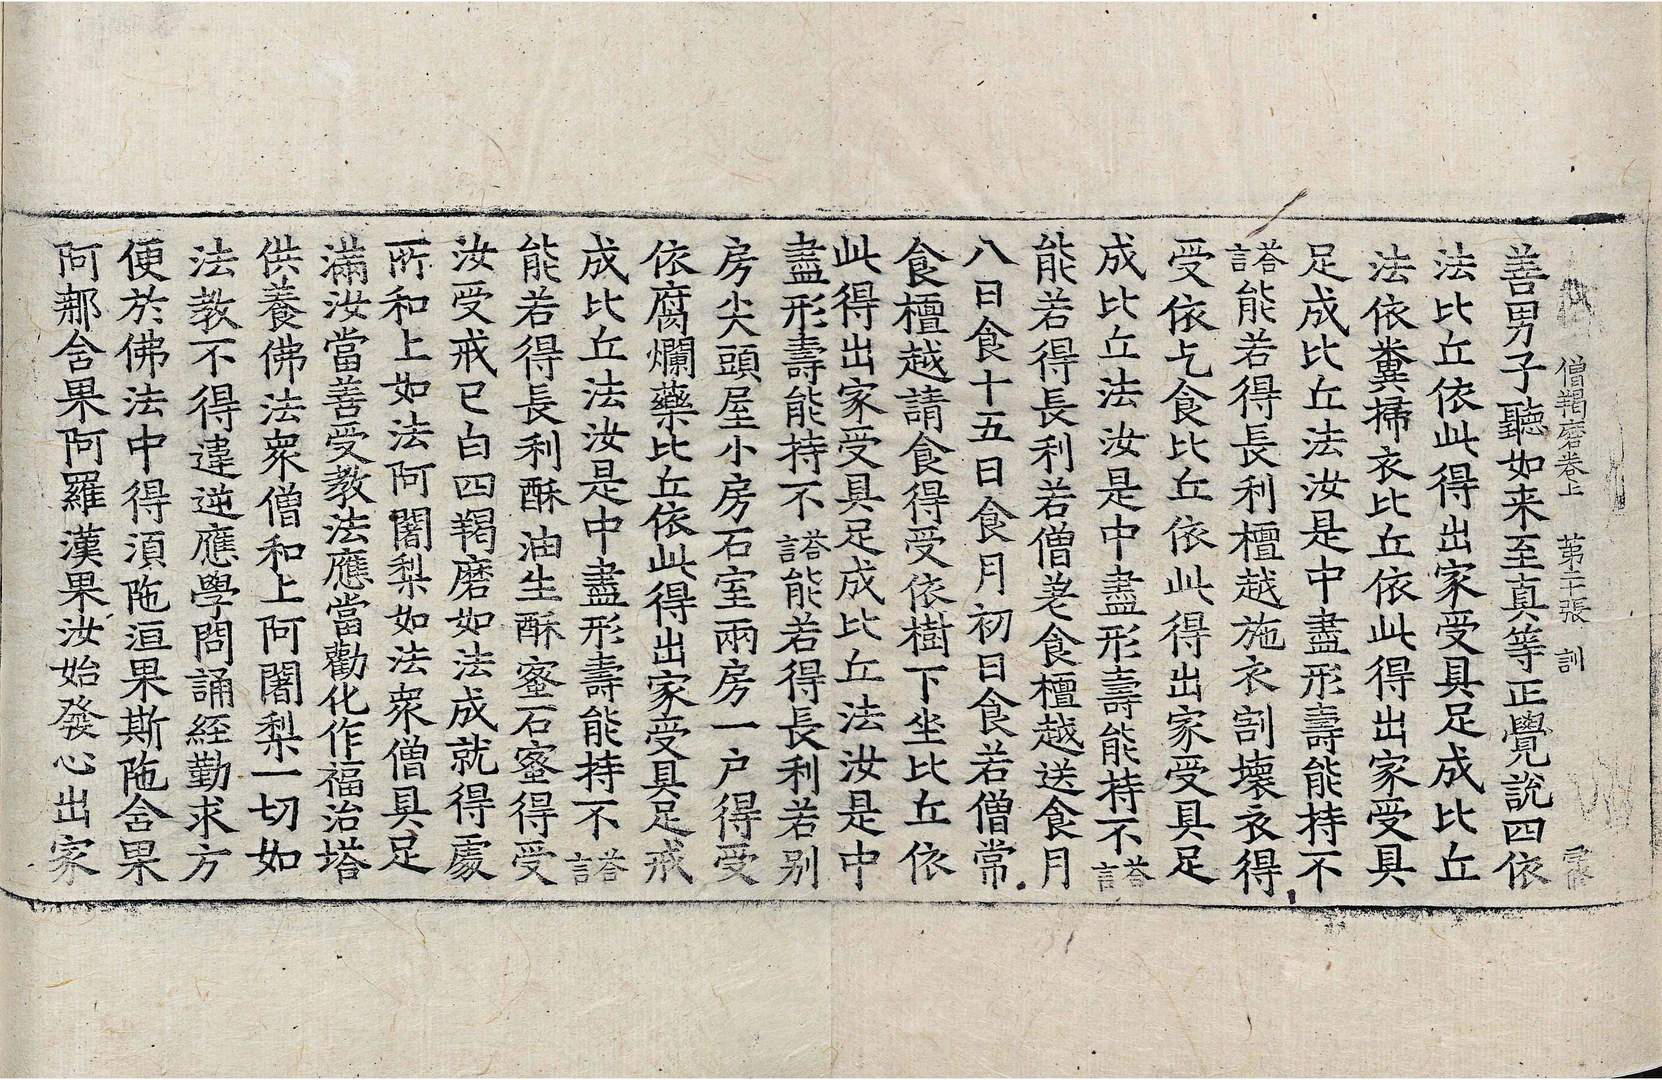 僧羯磨卷上 第二十張 訓
善男子聽如来至真等正覺說四依
法比丘依此得出家受具足成比丘
法依糞掃衣比丘依此得出家受具
足成比丘法汝是中盡形壽能持不
答言能若得長利檀越施衣割壞衣得
受依乞食比丘依此得出家受具足
成比丘法汝是中盡形壽能持不答言
能若得長利若僧差食檀越送食月
八日食十五日食月初日食若僧常
食檀越請食得受依樹下坐比丘依
此得出家受具足成比丘法汝是中
盡形壽能持不答言能若得長利若別
房尖頭屋小房石室兩房一户得受
依腐爛藥比丘依此得出家受具足戒
成比丘法汝是中盡形壽能持不答言
能若得長利酥油生酥蜜石蜜得受
汝受戒已白四羯磨如法成就得處
所和上如法阿闍梨如法衆僧具足
滿汝當善受教法應當勸化作福治塔
供養佛法衆僧和上阿闍梨一切如
法教不得違逆應學問誦經勤求方
便於佛法中得湏陁洹果斯陁舍果
阿那舍果阿羅漢果汝始發心出家